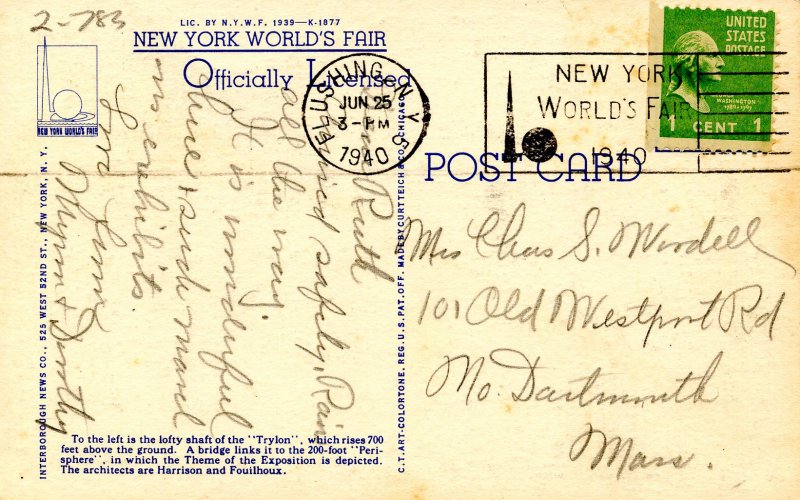 2-783
LIC. BY N.Y.W.F. 1939—K-1877
NEW YORK WORLD'S FAIR
Officially Licensed
NEW YORK WORLD'S FAIR
INTERBOROUGH NEWS CO., 525 WEST 52ND ST., NEW YORK, N. Y.
Ruth
safely, Rain
all the way.
It is wonderful
here & such
exhibits
Love from
Myron & Dorothy
To the left is the lofty shaft of the "Trylon", which rises 700
feet above the ground. A bridge links it to the 200-foot "Peri-
sphere", in which the Theme of the Exposition is depicted.
The architects are Harrison and Fouilhoux.
C.T. ART-COLORTONE, REG. U.S. PAT. OFF. MADE BY CURT TEICH & CO. CHICAGO
FLUSHING, N.Y.
JUN 25
3-PM
1940
NEW YORK
WORLD'S FAIR
1940
UNITED
STATES
POSTAGE
WASHINGTON
1789-1797
1 CENT 1
POST CARD
Mrs Chas S. Wordell
101 Old Westport Rd
No. Dartmouth
Mass.